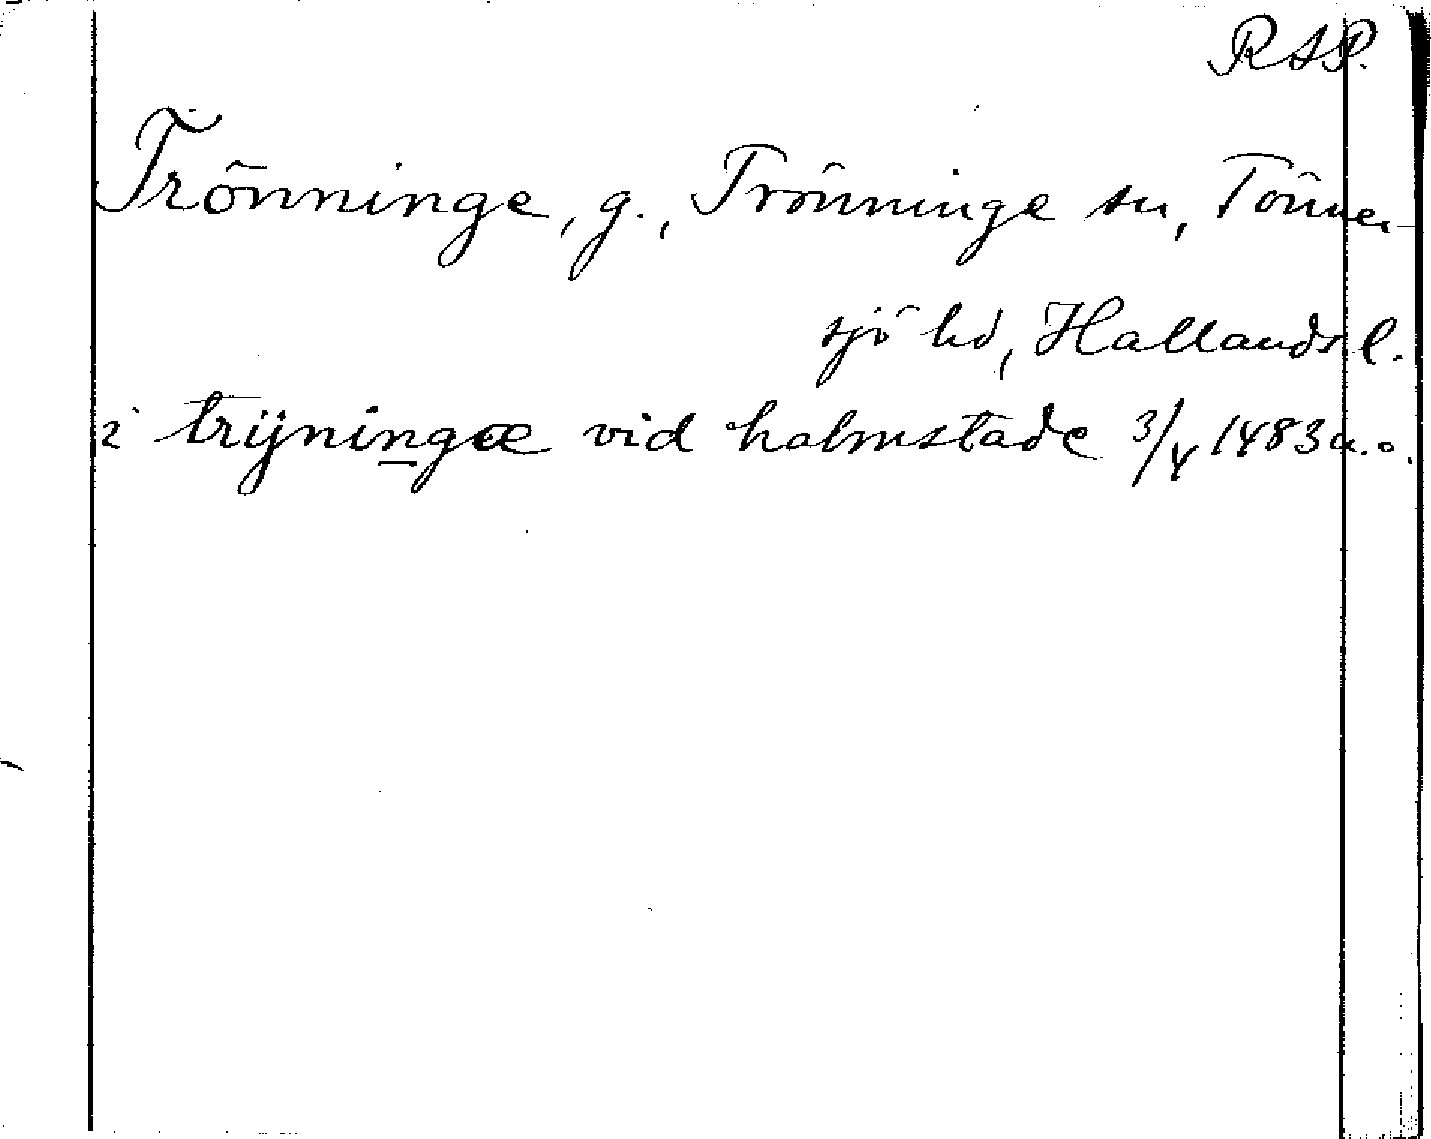 RAP.
Trönninge, g., Trönninge sn, Tönner-
sjö hd, Hallands l.
i trijningæ vid halmstade 3/4 1483 a.o.